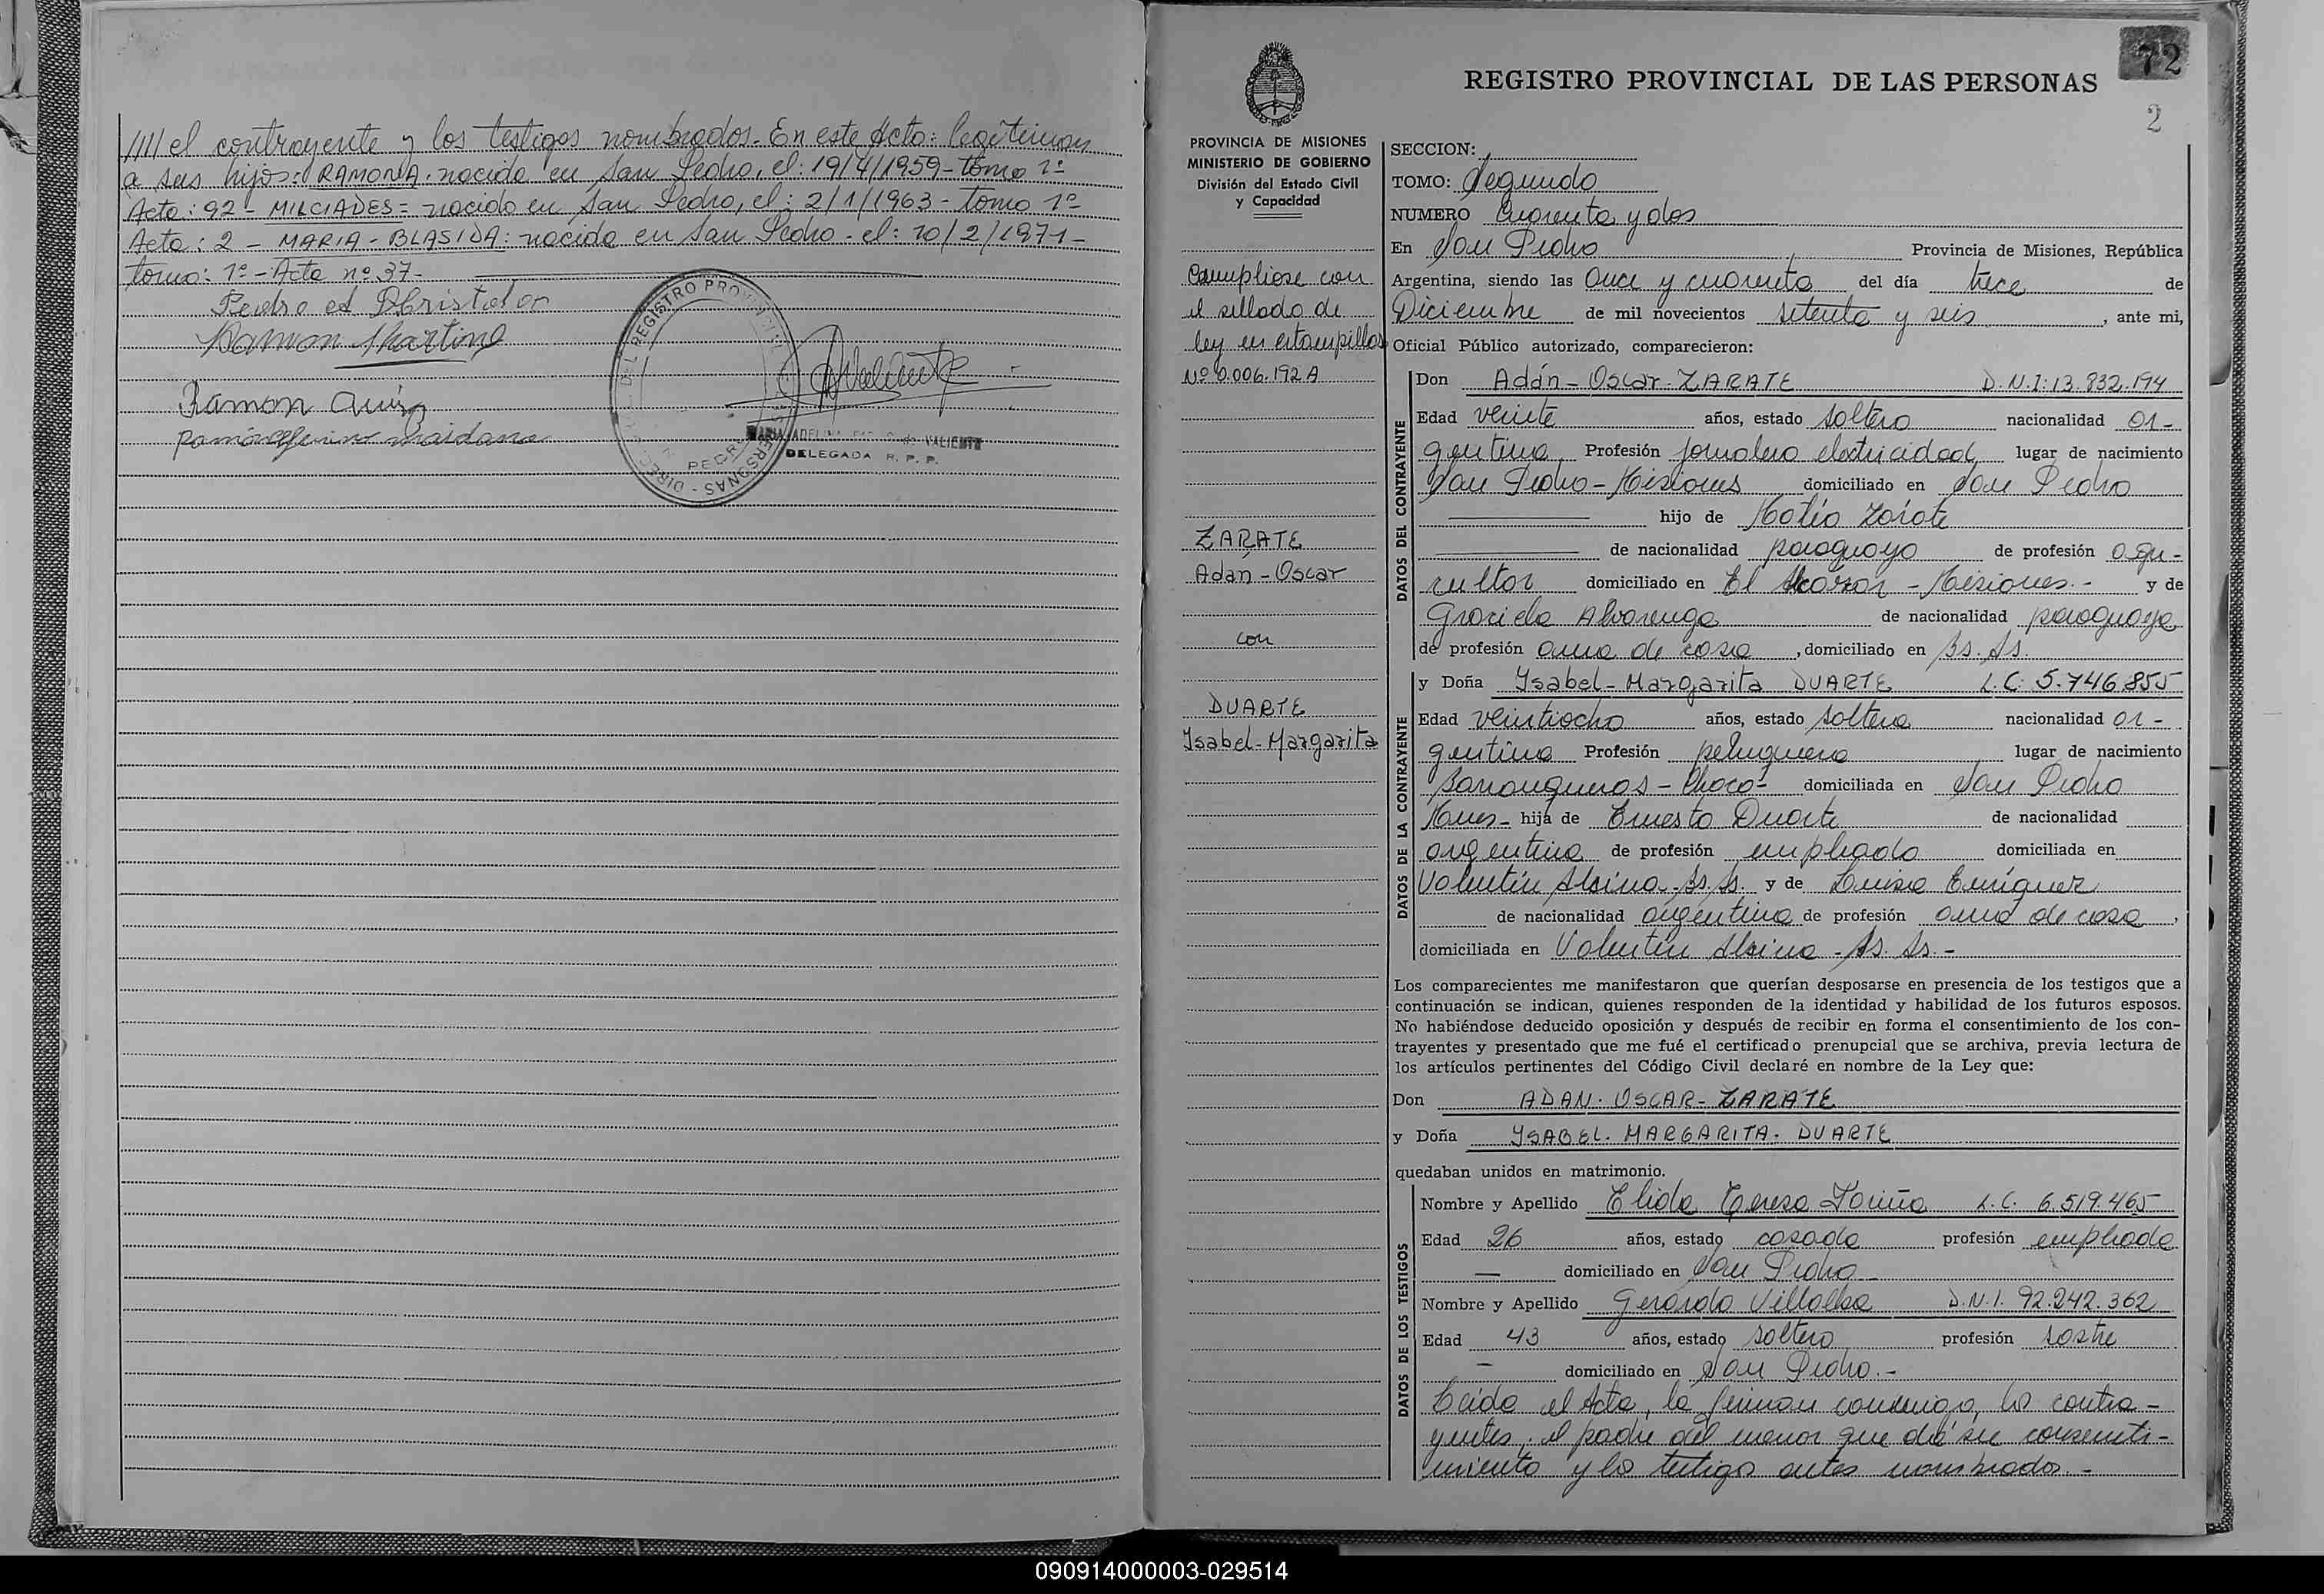 //// el contrayente y los testigos nombrados. En este Acto: legitiman
a sus hijos: RAMONA. nacida en San Pedro, el: 19/4/1959 - tomo 1º
Acta: 92 - MILCIADES = nacido en San Pedro, el: 2/1/1963 - Tomo 1º
Acta: 2 - MARIA - BLASIDA: nacida en San Pedro - el: 10/2/1971 -
tomo: 1º - Acta nº 37 -
Pedro
Ramon Martine
Ramon
maidana
DEL REGISTRO PROVINCIAL
PERSONAS - DIREC
VALIENTE
DELEGADA R. P. P.
72
2
REGISTRO PROVINCIAL DE LAS PERSONAS
PROVINCIA DE MISIONES
MINISTERIO DE GOBIERNO
División del Estado Civil
y Capacidad
Cumpliose con
el sellado de
ley en estampillas
Nº 0.006.192 A
ZARATE
Adán - Oscar
con
DUARTE
Ysabel - Margarita
SECCION:
TOMO: Segundo
NUMERO Cuarenta y dos
En San Pedro Provincia de Misiones, República
Argentina, siendo las Once y cuarenta del día trece de
Diciembre de mil novecientos setenta y seis, ante mi,
Oficial Público autorizado, comparecieron:
DATOS DEL CONTRAYENTE
Don Adán - Oscar - ZARATE D.N.I: 13.832.194
Edad veinte años, estado soltero nacionalidad ar-
gentina Profesión jornalero electricidad lugar de nacimiento
San Pedro - Misiones domiciliado en San Pedro
hijo de Matío Zárate
de nacionalidad paraguaya de profesión agri-
cultor domiciliado en El Alcazar - Misiones.- y de
Graciela Alvarenga de nacionalidad paraguaya
de profesión ama de casa, domiciliado en Bs. As.
DATOS DE LA CONTRAYENTE
y Doña Ysabel - Margarita DUARTE L.C: 5.746.855
Edad veintiocho años, estado soltera nacionalidad ar-
gentina Profesión peluquera lugar de nacimiento
Barranqueras - Chaco - domiciliada en San Pedro
Mnes - hija de Ernesto Duarte de nacionalidad
argentina de profesión empleado domiciliada en
Valentín Alsina - Bs. As. y de Luisa Enríquez
de nacionalidad argentina de profesión ama de casa,
domiciliada en Valentín Alsina - Bs. As. -
Los comparecientes me manifestaron que querían desposarse en presencia de los testigos que a
continuación se indican, quienes responden de la identidad y habilidad de los futuros esposos.
No habiéndose deducido oposición y después de recibir en forma el consentimiento de los con-
trayentes y presentado que me fué el certificado prenupcial que se archiva, previa lectura de
los artículos pertinentes del Código Civil declaré en nombre de la Ley que:
Don ADAN - OSCAR - ZARATE
y Doña YSABEL - MARGARITA - DUARTE
quedaban unidos en matrimonio.
DATOS DE LOS TESTIGOS
Nombre y Apellido Elida Teresa L.C. 6.519.465
Edad 26 años, estado casada profesión empleada
— domiciliado en San Pedro
Nombre y Apellido Gerardo Villalba D.N.I. 92.242.362
Edad 43 años, estado soltero profesión sastre
— domiciliado en San Pedro. -
Leida el Acta, la firman conmigo, los contra-
yentes, el padre del menor que dió su consenti-
miento y los testigos antes nombrados. -
090914000003-029514